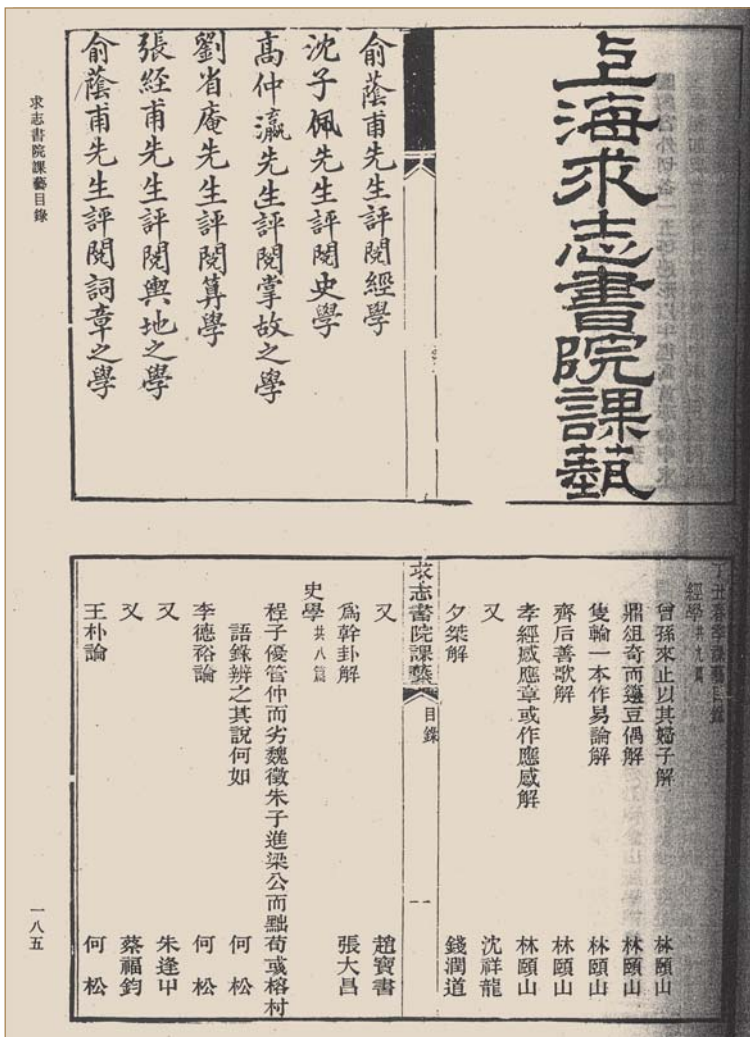 上海求志書院課藝
俞蔭甫先生評閱經學
沈子佩先生評閱史學
高仲瀛先生評閱掌故之學
劉省庵先生評閱算學
張經甫先生評閱輿地之學
俞蔭甫先生評閱詞章之學
求志書院課藝目錄
丁丑春季課藝目錄
經學 共九篇
曾孫來止以其婦子解 林頤山
鼎俎奇而籩豆偶解 林頤山
隻輪一本作易論解 林頤山
齊后善歌解 林頤山
孝經感應章或作應感解 林頤山
又 沈祥龍
夕桀解 錢潤道
求志書院課藝 目錄 一
又 趙寶書
爲幹卦解 張大昌
史學 共八篇
程子優管仲而劣魏徵朱子進梁公而黜荀彧榕村
語錄辨之其說何如 何松
李德裕論 何松
又 朱逢甲
又 蔡福鈞
王朴論 何松
一八五